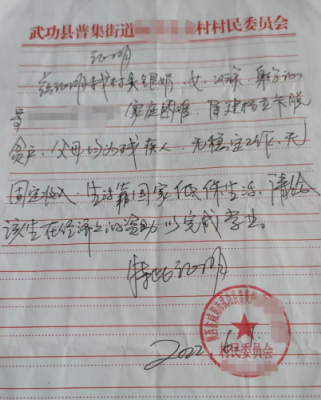 武功县普集街道 村村民委员会
证明
兹证明我村吴银娟，女，汉族，身份证
号 家庭困难，属建档立卡脱
贫户，父母均为残疾人，无稳定工作，无
固定收入，生活靠国家低保生活，请给
该生在经济上的资助以完成学业。
特此证明
2022.
村民委员会